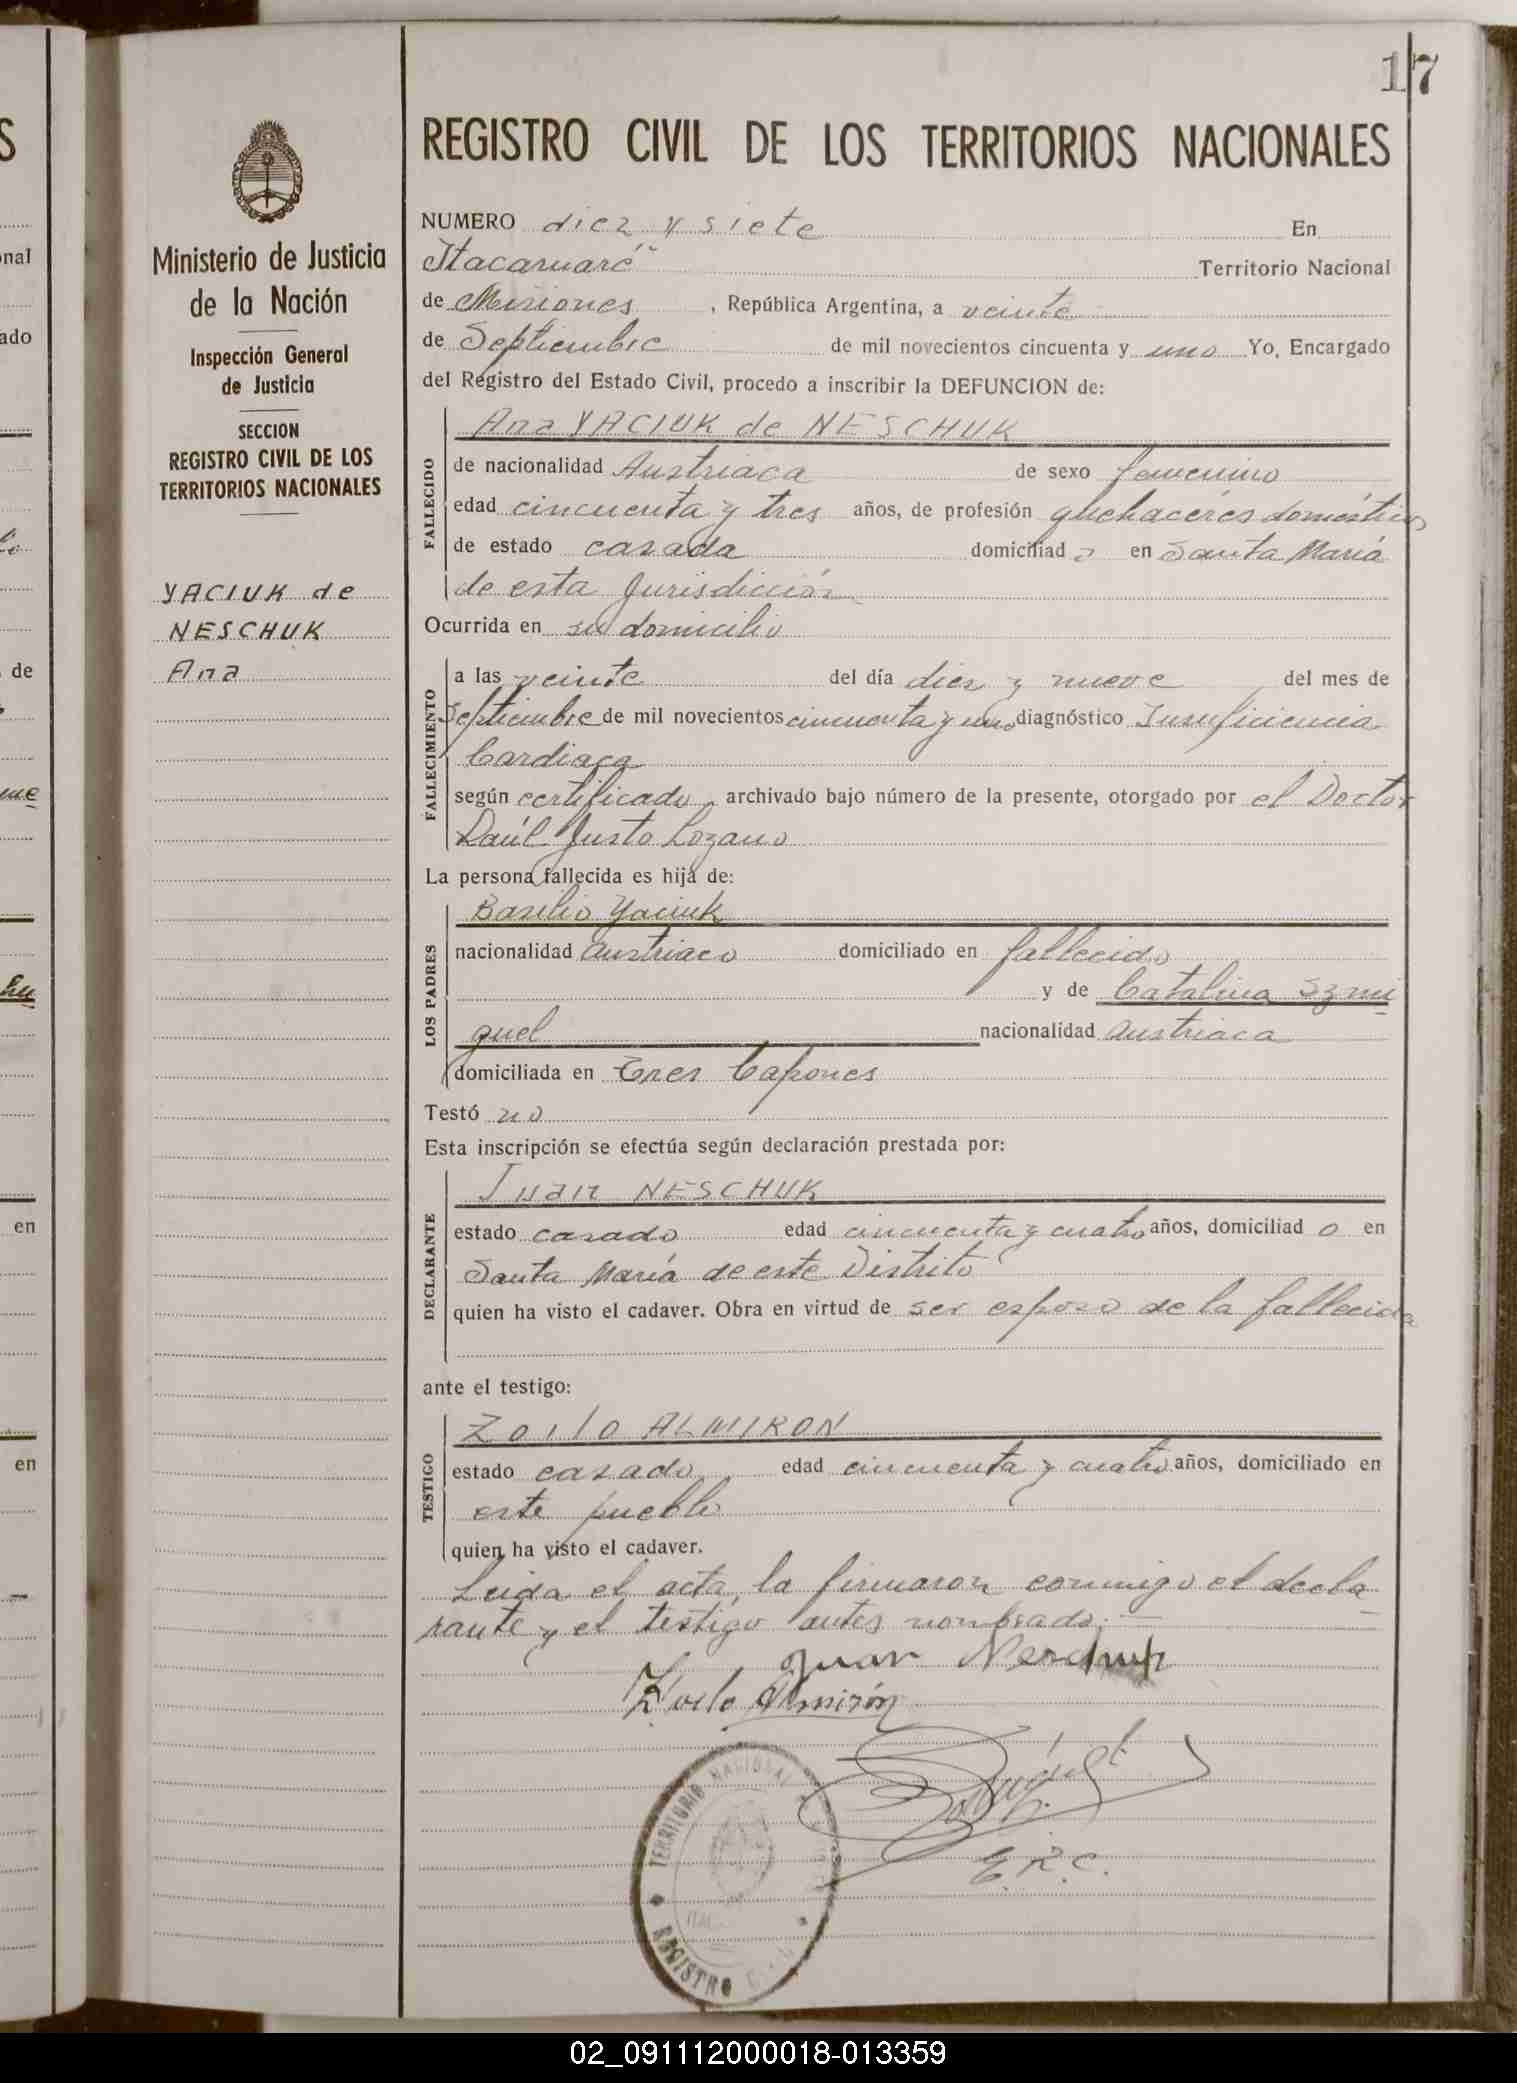 17
REGISTRO CIVIL DE LOS TERRITORIOS NACIONALES
Ministerio de Justicia
de la Nación
Inspección General
de Justicia
SECCION
REGISTRO CIVIL DE LOS
TERRITORIOS NACIONALES
YACIUK de
NESCHUK
Ana
NUMERO diez y siete En
Itacaruaré Territorio Nacional
de Misiones, República Argentina, a veinte
de Septiembre de mil novecientos cincuenta y uno Yo, Encargado
del Registro del Estado Civil, procedo a inscribir la DEFUNCION de:
Ana YACIUK de NESCHUK
FALLECIDO
de nacionalidad Austriaca de sexo femenino
edad cincuenta y tres años, de profesión quehacéres doméstico
de estado casada domiciliad a en Santa María
de esta Jurisdicción
Ocurrida en su domicilio
FALLECIMIENTO
a las veinte del día diez y nueve del mes de
Septiembre de mil novecientos cincuenta y uno diagnóstico Insuficiencia
Cardiaca
según certificado, archivado bajo número de la presente, otorgado por el Doctor
Raúl Justo Lozano
La persona fallecida es hija de:
LOS PADRES
Basilio Yaciuk
nacionalidad Austriaco domiciliado en fallecido
y de Catalina Szmi
guel nacionalidad Austriaca
domiciliada en Tres Capones
Testó no
Esta inscripción se efectúa según declaración prestada por:
DECLARANTE
Juan NESCHUK
estado casado edad cincuenta y cuatro años, domiciliad o en
Santa María de este Distrito
quien ha visto el cadaver. Obra en virtud de ser esposo de la fallecida
ante el testigo:
TESTIGO
Zoilo ALMIRON
estado casado edad cincuenta y cuatro años, domiciliado en
este pueblo
quien ha visto el cadaver.
Leida el acta, la firmaron conmigo el decla
rante y el testigo antes nombrado.
Juan Neschuk
Zoilo Almirón
E.R.C.
TERRITORIO NACIONAL
REGISTRO
02_091112000018-013359